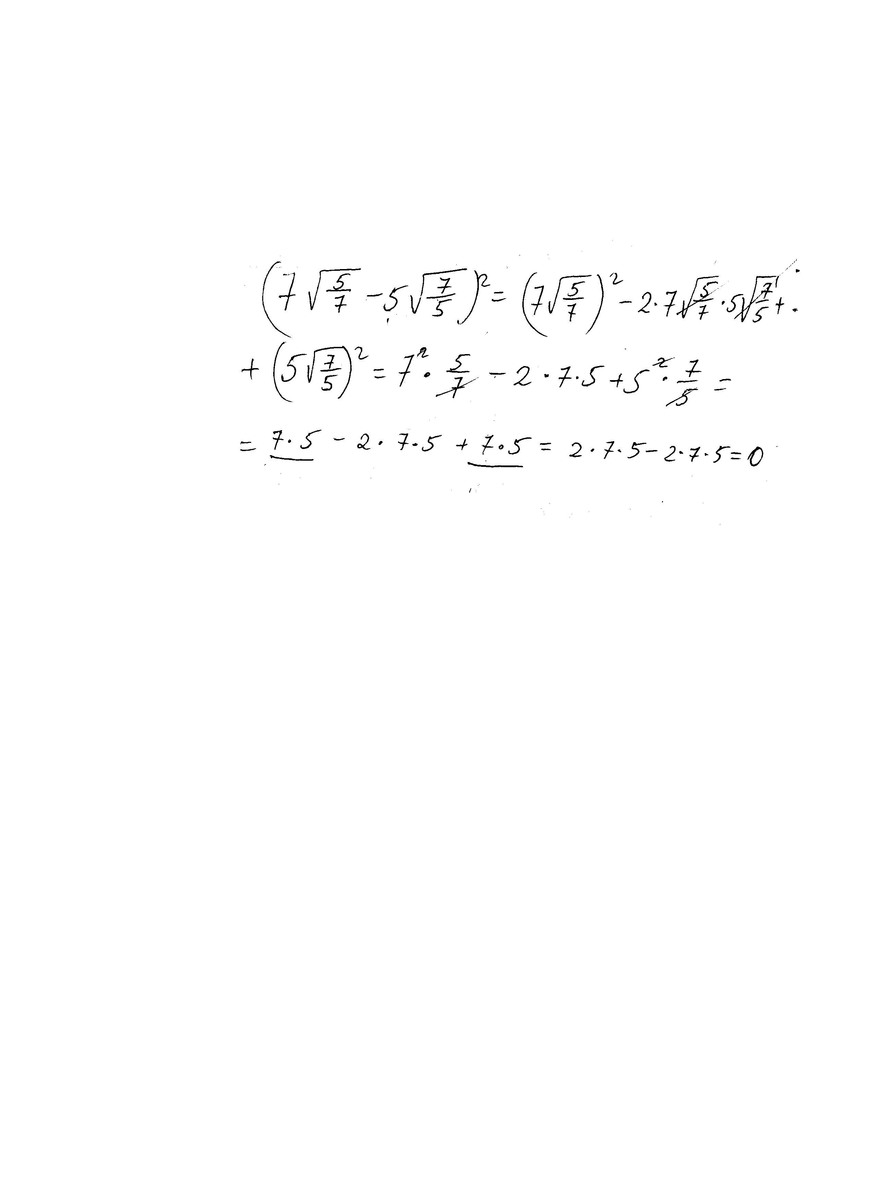 (7√(5/7) - 5√(7/5))² = (7√(5/7))² - 2·7√(5/7)·5√(7/5) +
+ (5√(7/5))² = 7²·5/7 - 2·7·5 + 5²·7/5 =
= 7·5 - 2·7·5 + 7·5 = 2·7·5 - 2·7·5 = 0